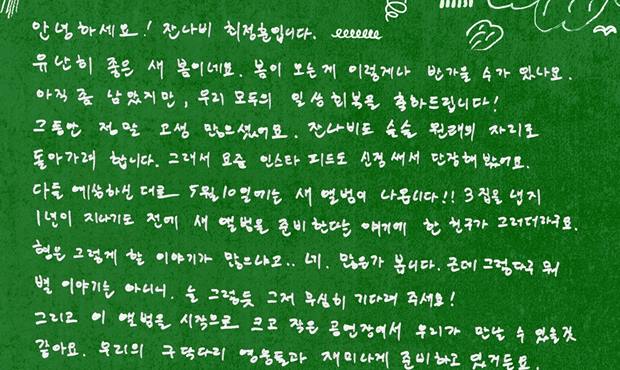 안녕하세요! 잔나비 최정훈입니다.
유난히 좋은 새 봄이네요. 봄이 오는게 이렇게나 반가울 수가 있나요.
아직 좀 남았지만, 우리 모두의 일상회복을 축하드립니다!
그동안 정말 고생 많으셨어요. 잔나비도 슬슬 원래의 자리로
돌아가려 합니다. 그래서 요즘 인스타 피드도 신경써서 단장해 봤어요.
다들 예상하신 대로 5월10일에는 새 앨범이 나옵니다!! 3집을 낸지
1년이 지나기도 전에 새 앨범을 준비한다는 얘기에 한 친구가 그러더라구요.
형은 그렇게 할 이야기가 많으냐고.. 네. 많은가 봅니다. 근데 그렇다구 뭐
별 이야기는 아니니. 늘 그렇듯 그저 무심히 기다려 주세요!
그리고 이 앨범을 시작으로 크고 작은 공연장에서 우리가 만날 수 있을것
같아요. 우리의 구닥다리 영웅들과 재미나게 준비하고 있거든요.